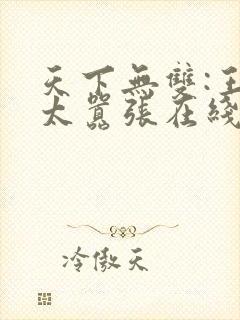 天下無雙:
太囂張在綫
冷傲天